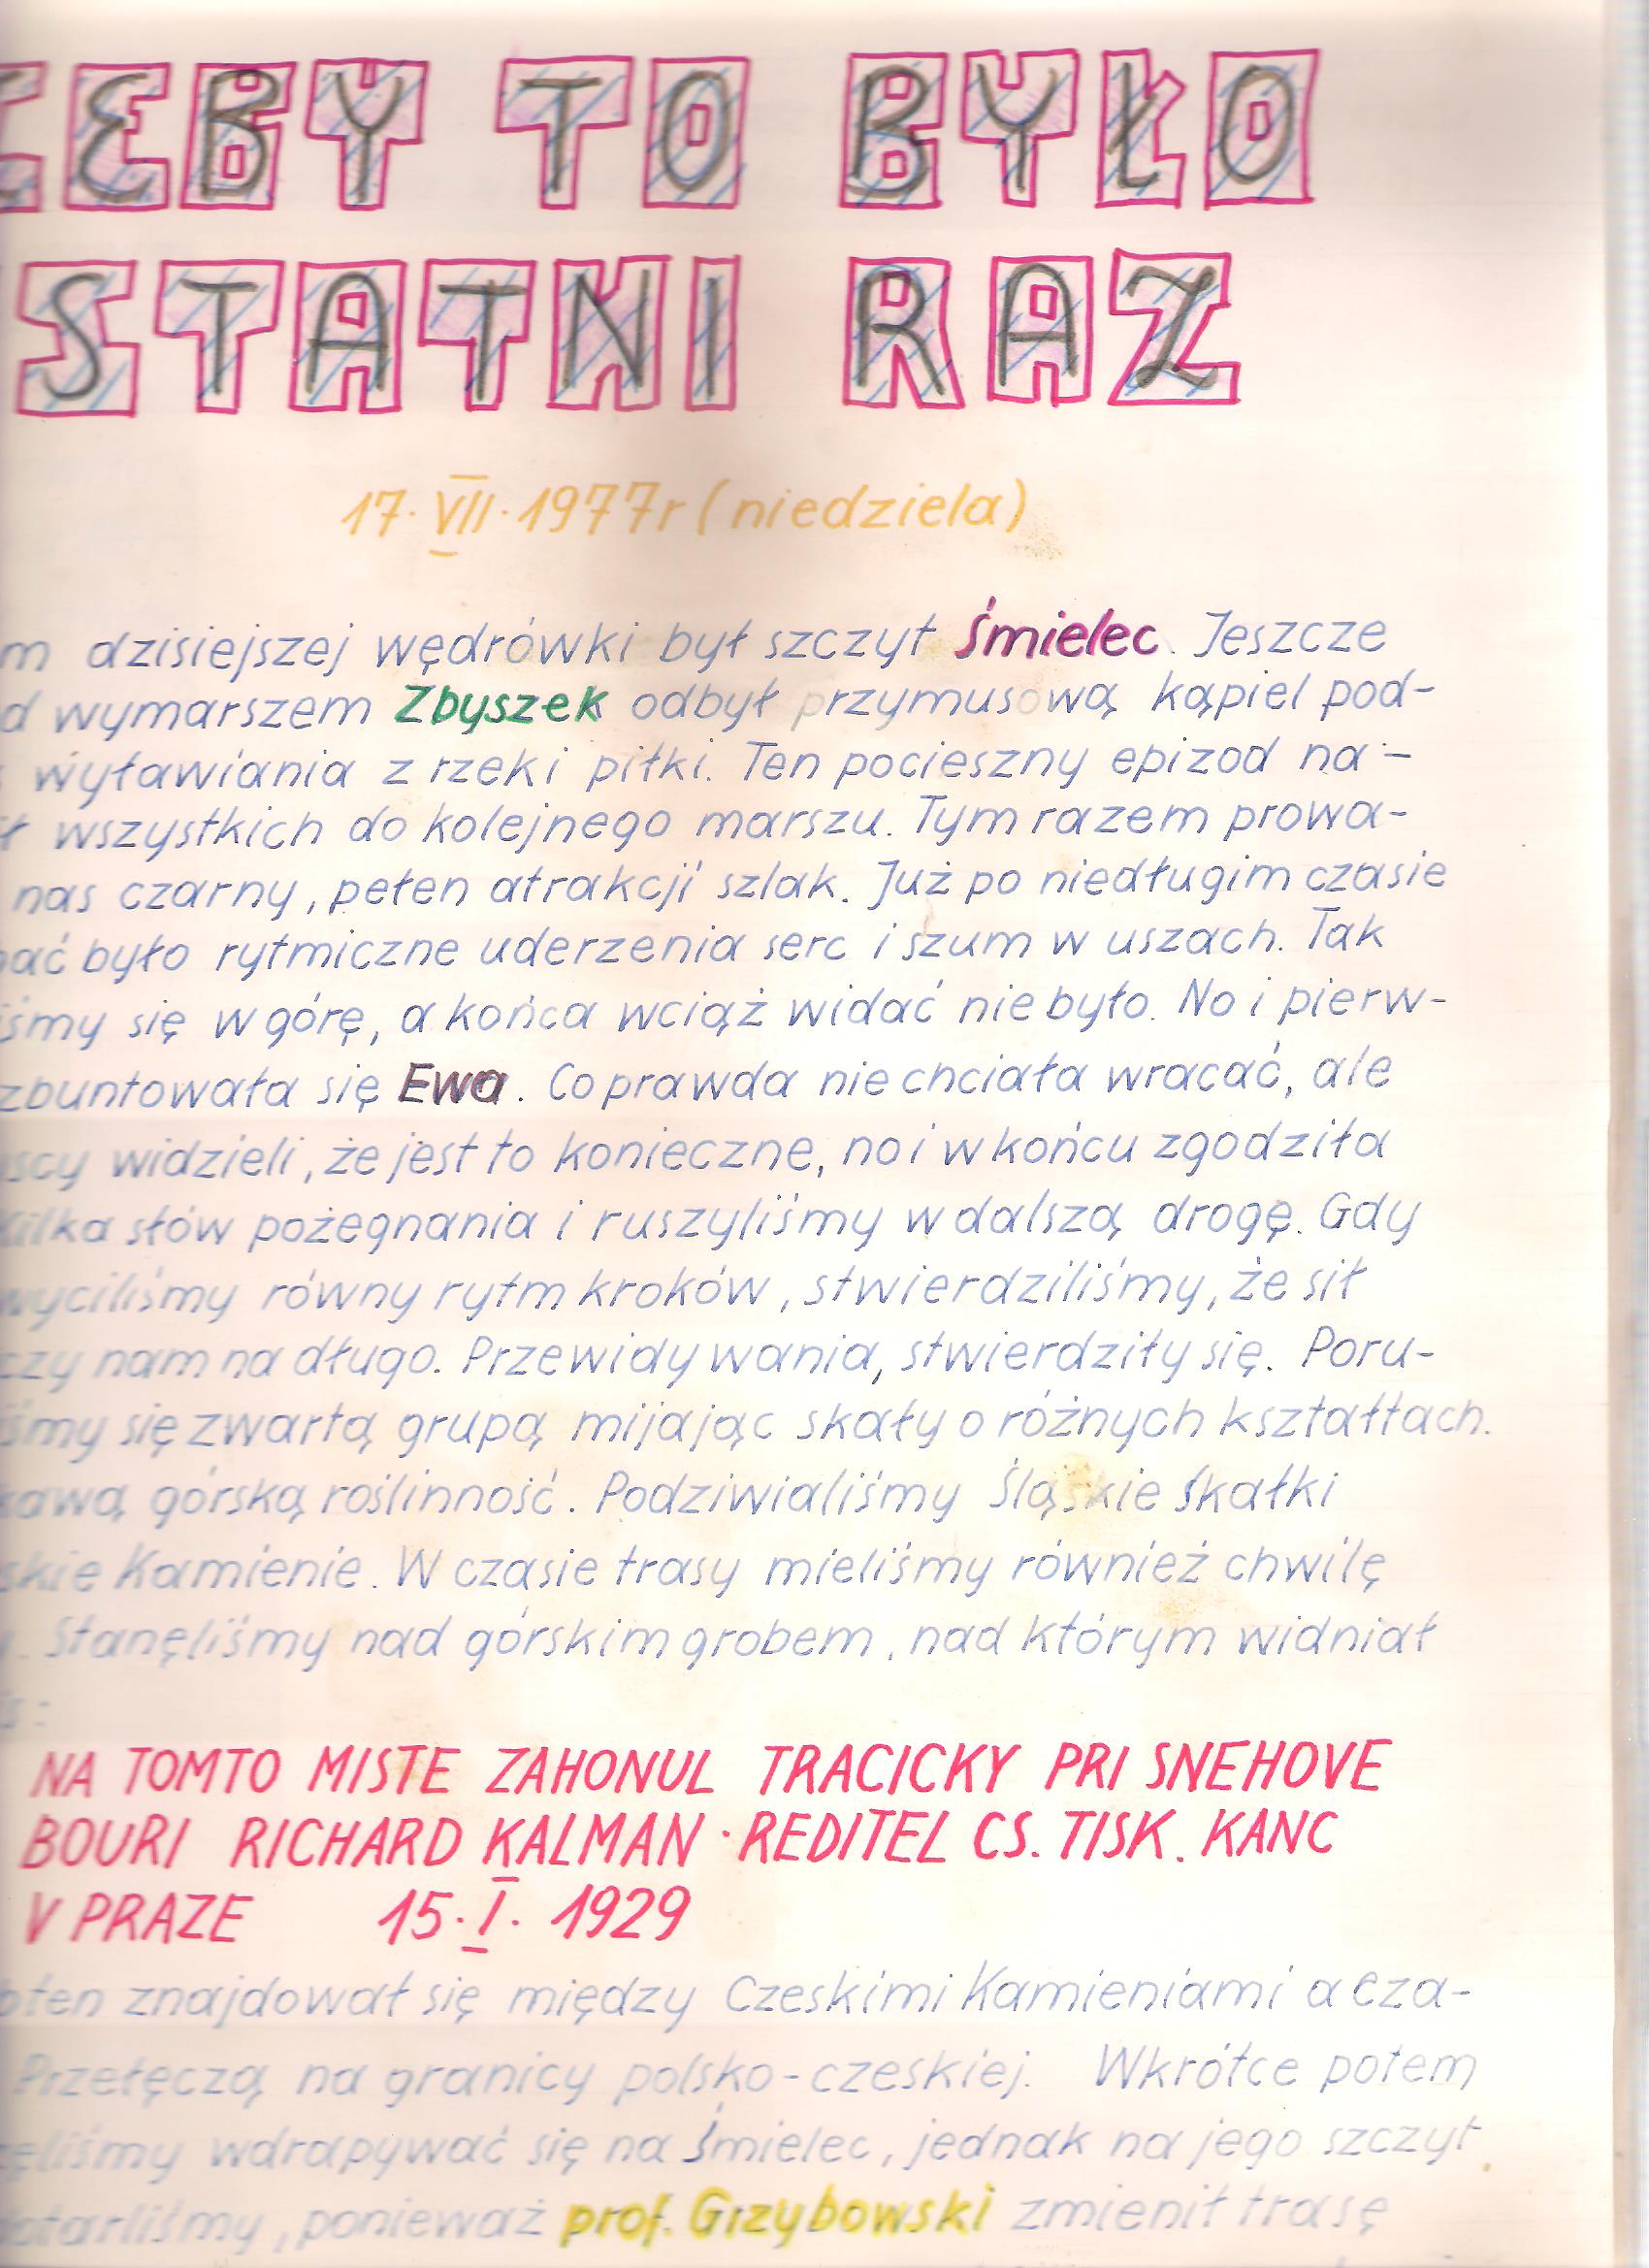 ŻEBY TO BYŁO
STATNI RAZ
17.VII.1977r (niedziela)
m dzisiejszej wędrówki był szczyt Śmielec. Jeszcze
d wymarszem Zbyszek odbył przymusową kąpiel pod-
wyławiania z rzeki piłki. Ten pocieszny epizod na-
ł wszystkich do kolejnego marszu. Tym razem prowa-
nas czarny, pełen atrakcji szlak. Już po niedługim czasie
ać było rytmiczne uderzenia serc i szum w uszach. Tak
iśmy się w górę, a końca wciąż widać nie było. No i pierw-
zbuntowała się Ewa. Co prawda nie chciała wracać, ale
yscy widzieli, że jest to konieczne, no i w końcu zgodziła
Kilka słów pożegnania i ruszyliśmy w dalszą drogę. Gdy
wyciliśmy równy rytm kroków, stwierdziliśmy, że sił
czy nam na długo. Przewidywania, stwierdziły się. Poru-
iśmy się zwartą grupą mijając skały o różnych kształtach.
kawą górską roślinność. Podziwialiśmy Śląskie Skałki
skie Kamienie. W czasie trasy mieliśmy również chwilę
. Stanęliśmy nad górskim grobem, nad którym widniał
is:
NA TOMTO MISTE ZAHONUL TRACICKY PRI SNEHOVE
BOURI RICHARD KALMAN · REDITEL CS. TISK. KANC
V PRAZE 15.I. 1929
b ten znajdował się między Czeskimi Kamieniami a Cza-
Przełęczą na granicy polsko-czeskiej. Wkrótce potem
ęliśmy wdrapywać się na Śmielec, jednak na jego szczyt
dotarliśmy, ponieważ prof. Grzybowski zmienił trasę